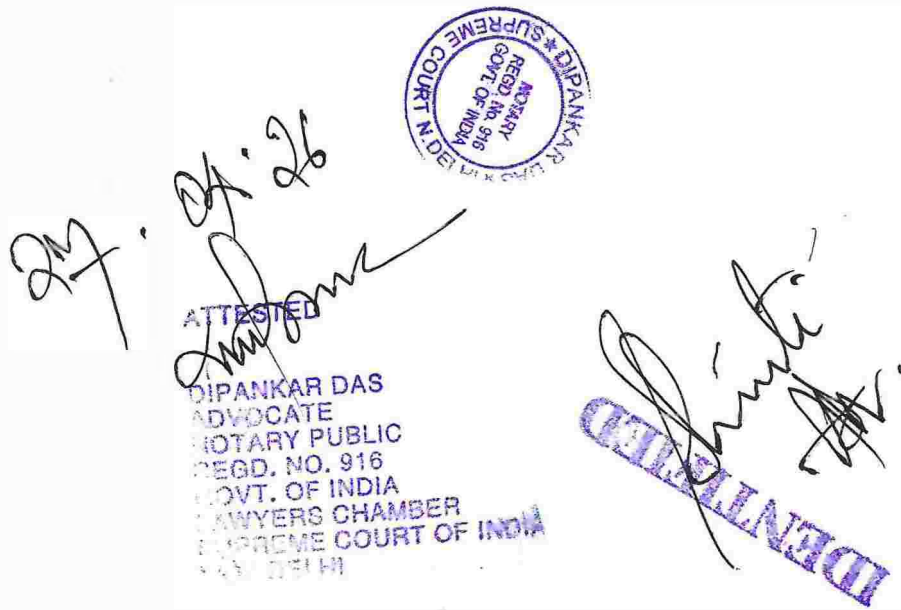 DIPANKAR DAS * SUPREME COURT N. DELHI *
NOTARY
REGD. No. 916
GOVT. OF INDIA
27.04.26
ATTESTED
DIPANKAR DAS
ADVOCATE
NOTARY PUBLIC
REGD. NO. 916
GOVT. OF INDIA
LAWYERS CHAMBER
SUPREME COURT OF INDIA
NEW DELHI
IDENTIFIED